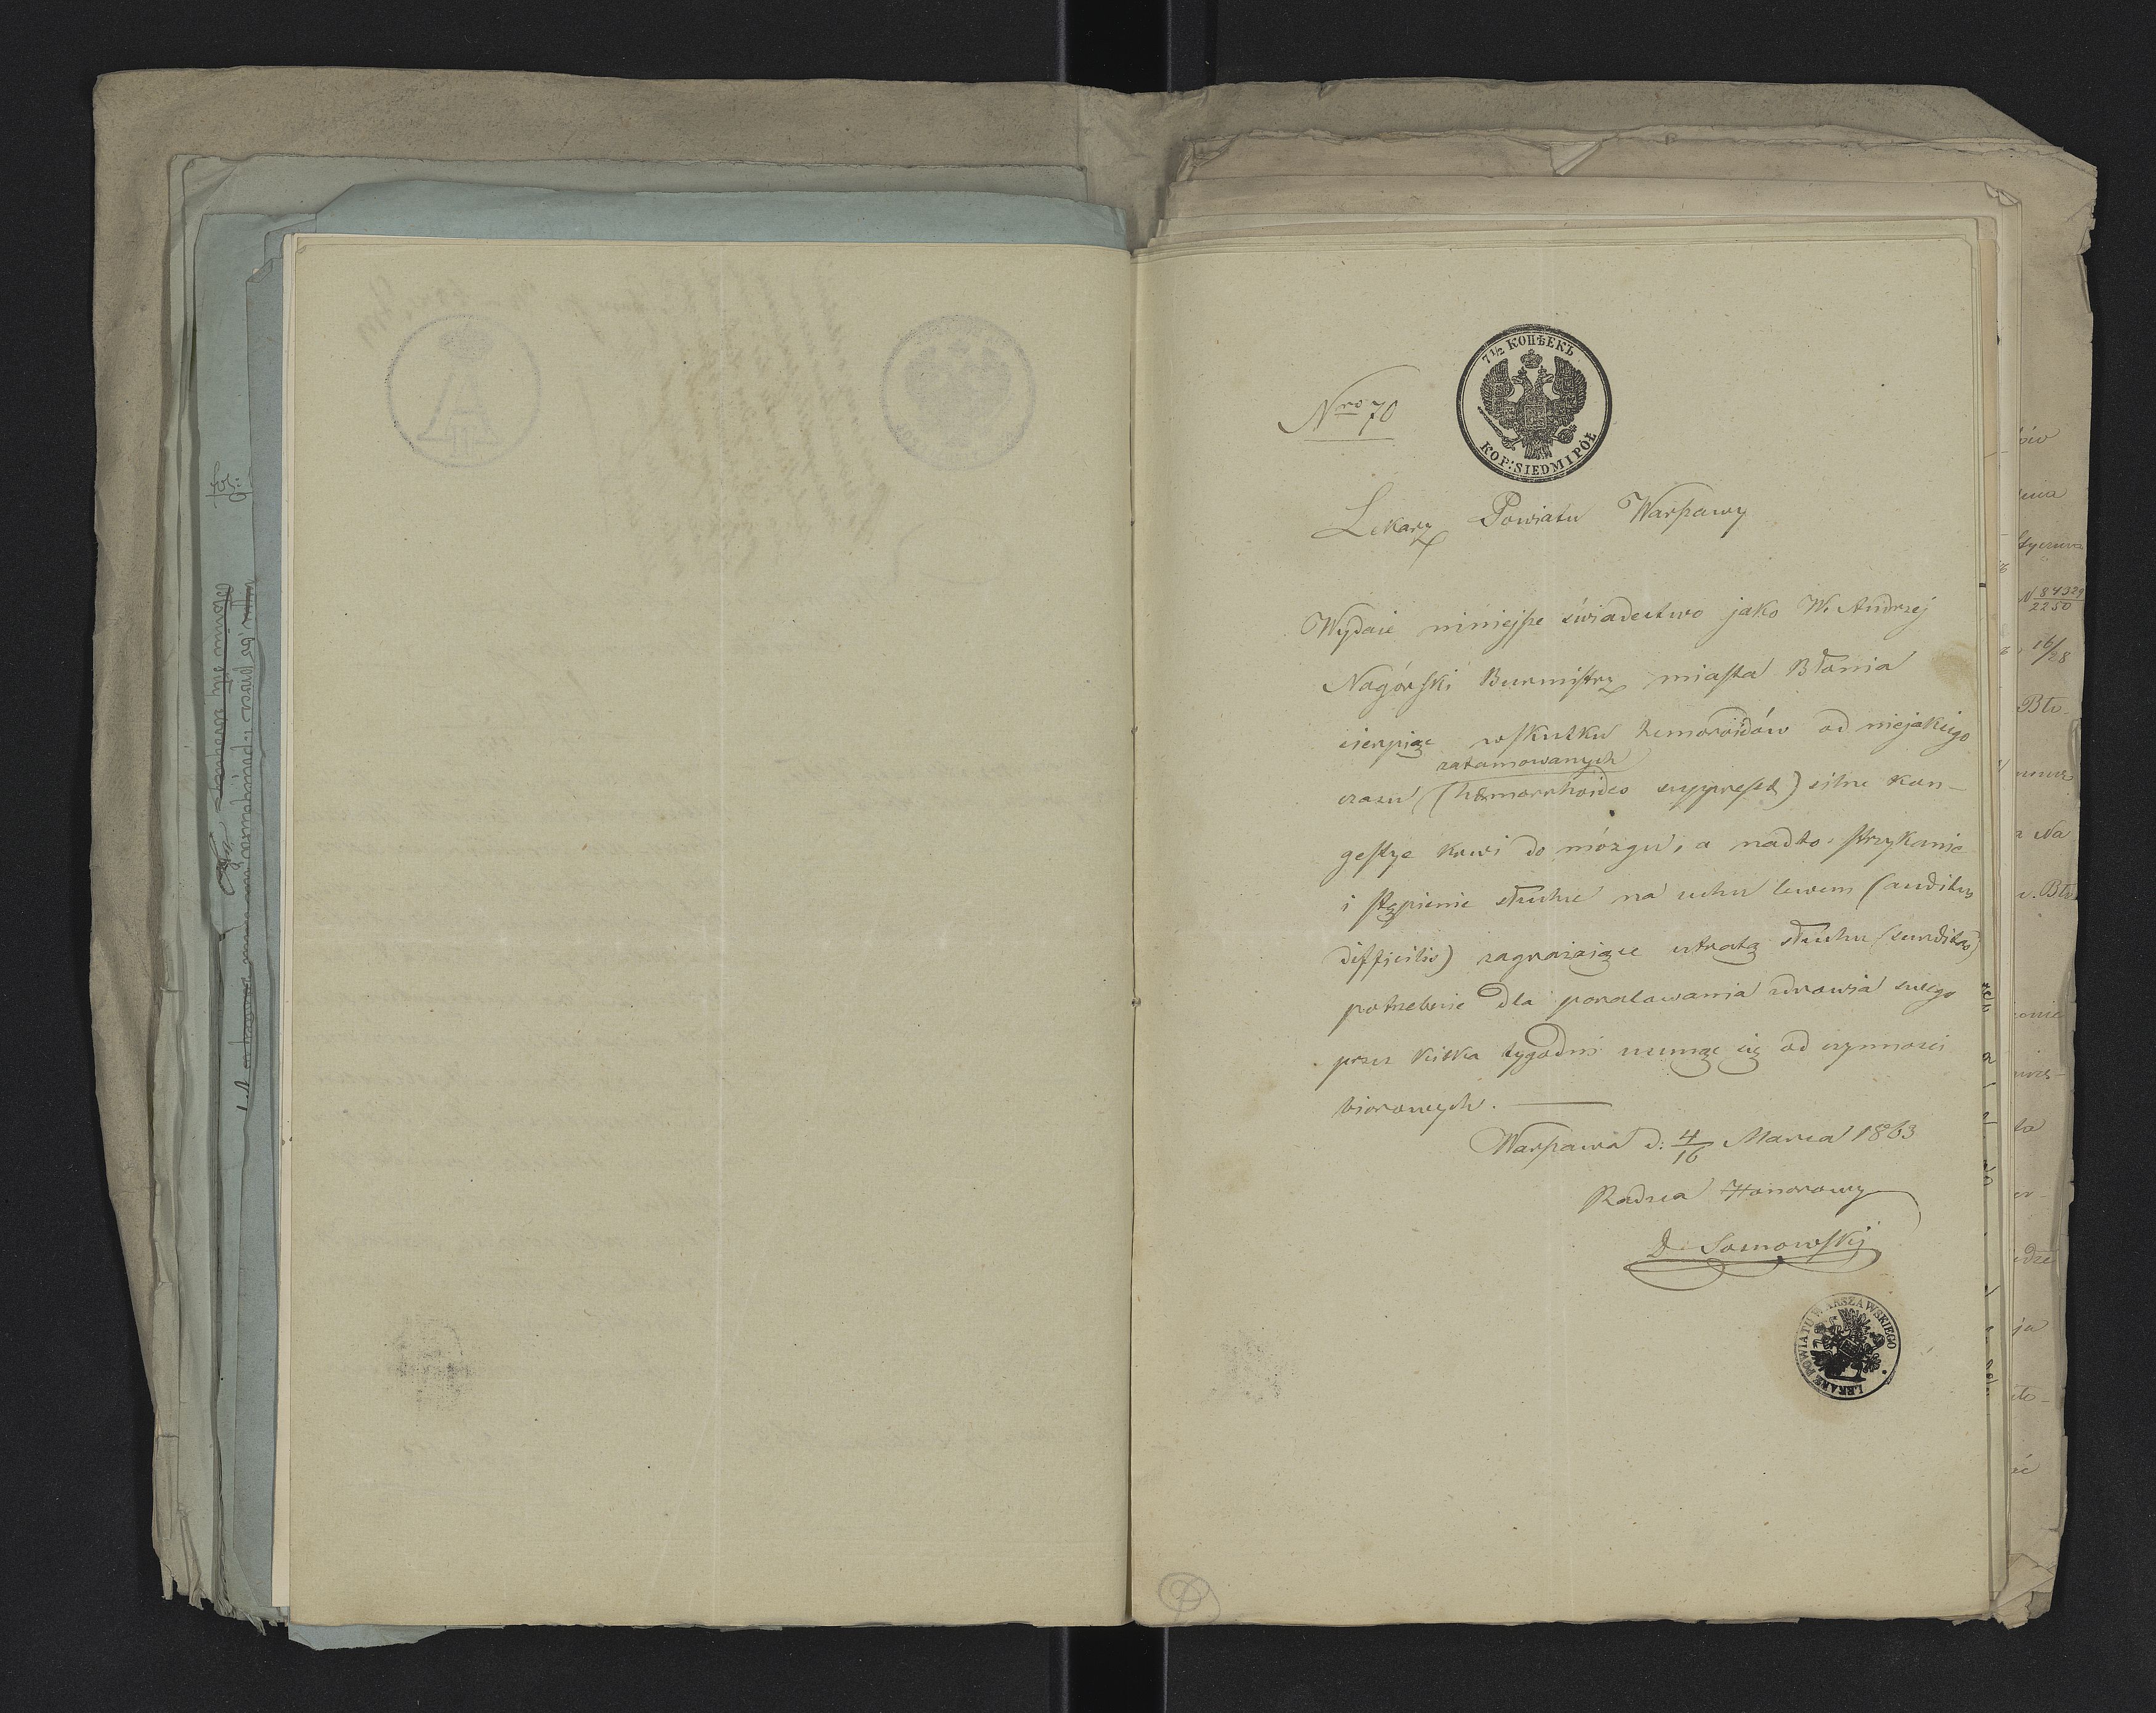 Nro 70
7½ КОПѢЕКЪ
KOP: SIEDM I PÓŁ
Lekarz Powiatu Warszawy
Wydaie niniejsze świadectwo jako W. Andrzej
Nagórski Burmistrz miasta Błonia
cierpiąc wskutku hemoroidów od niejakiego
zatamowanych
czasu (hæmorrhoides suppressæ) silne kon-
gestye krwi do mózgu, a nadto, strzykanie
i stępienie słuchu na uchu lewem (auditus
difficilis) zagrażaiące utratą słuchu (surditas)
potrzebuie dla poratowania zdrowia swego
przez kilka tygodni usunąć się od czynności
biorowych.
Warszawa d: 4/16 Marca 1863
Radzca Honorowy
D. Sosnowskij
LEKARZ POWIATU WARSZAWSKIEGO
fol:
N 87329
2250
16/28
Bło-
Na